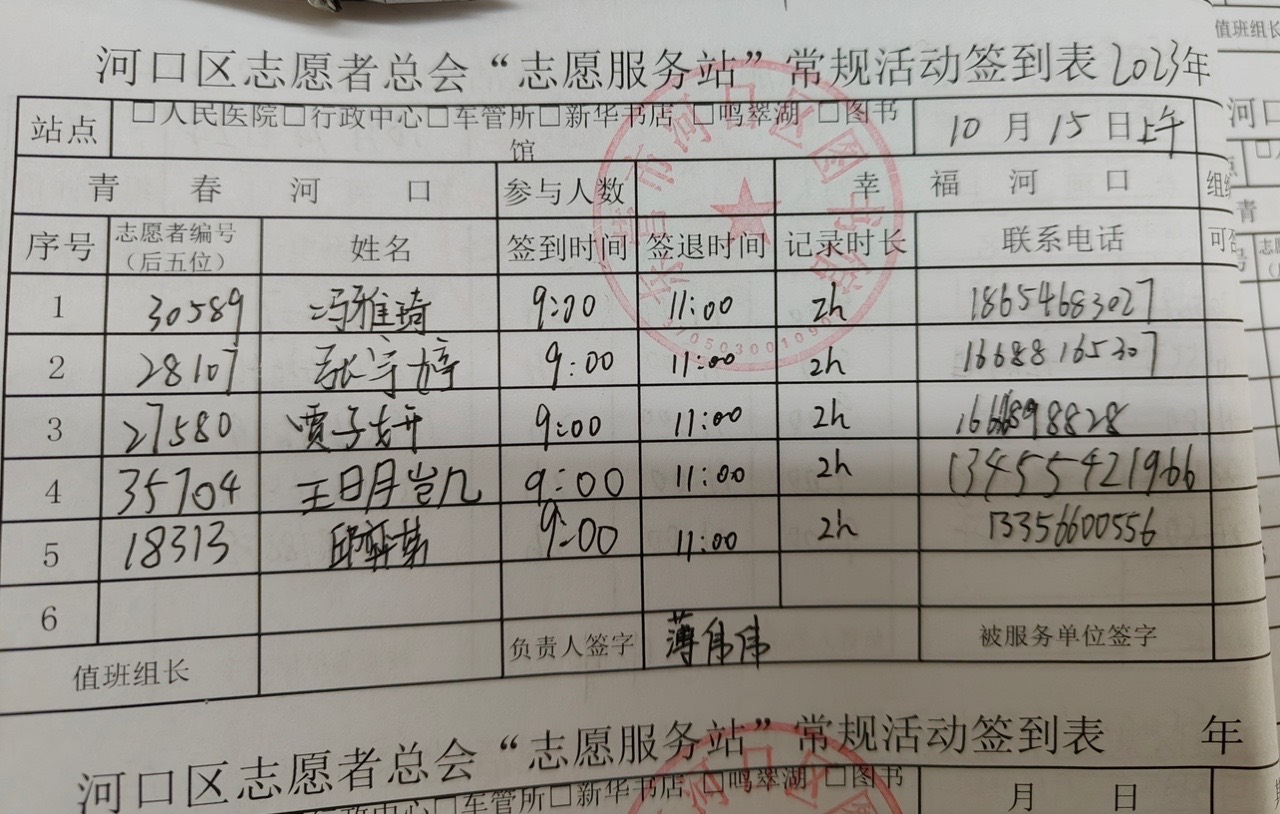 河口区志愿者总会“志愿服务站”常规活动签到表2023年
站点 □人民医院□行政中心□车管所□新华书店 □鸣翠湖 □图书馆 10月15日上午
青春河口 参与人数 幸福河口
序号 志愿者编号（后五位） 姓名 签到时间 签退时间 记录时长 联系电话
1 30589 冯雅琦 9:00 11:00 2h 18654683027
2 28107 张宇婷 9:00 11:00 2h 16688165307
3 27580 贾子妍 9:00 11:00 2h
4 35704 王日月岂几 9:00 11:00 2h 13455421966
5 18313 9:00 11:00 2h 13356600556
6
值班组长 负责人签字 薄伟伟 被服务单位签字
河口区志愿者总会“志愿服务站”常规活动签到表 年
行政中心□车管所□新华书店 □鸣翠湖 □图书 月 日
东营市河口区图书馆
值班组长
河口
青